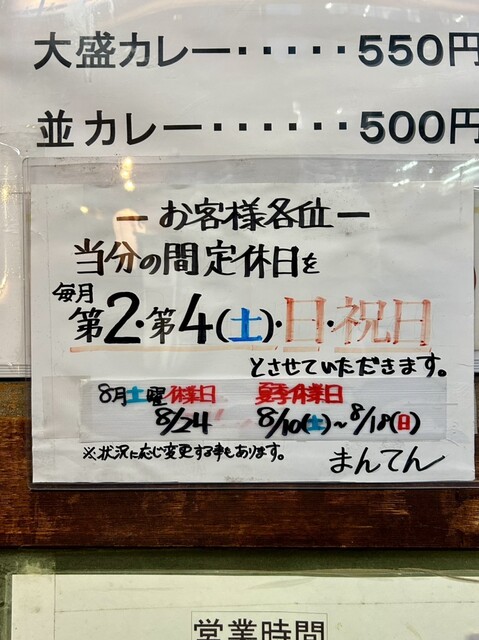 大盛カレー・・・・・550円
並カレー・・・・・・500円
ーお客様各位ー
当分の間定休日を
毎月
第2・第4(土)・日・祝日
とさせていただきます。
8月土曜休業日 夏季休業日
8/24 8/10(土)~8/18(日)
※状況に応じ変更する事もあります。
まんてん
営業時間